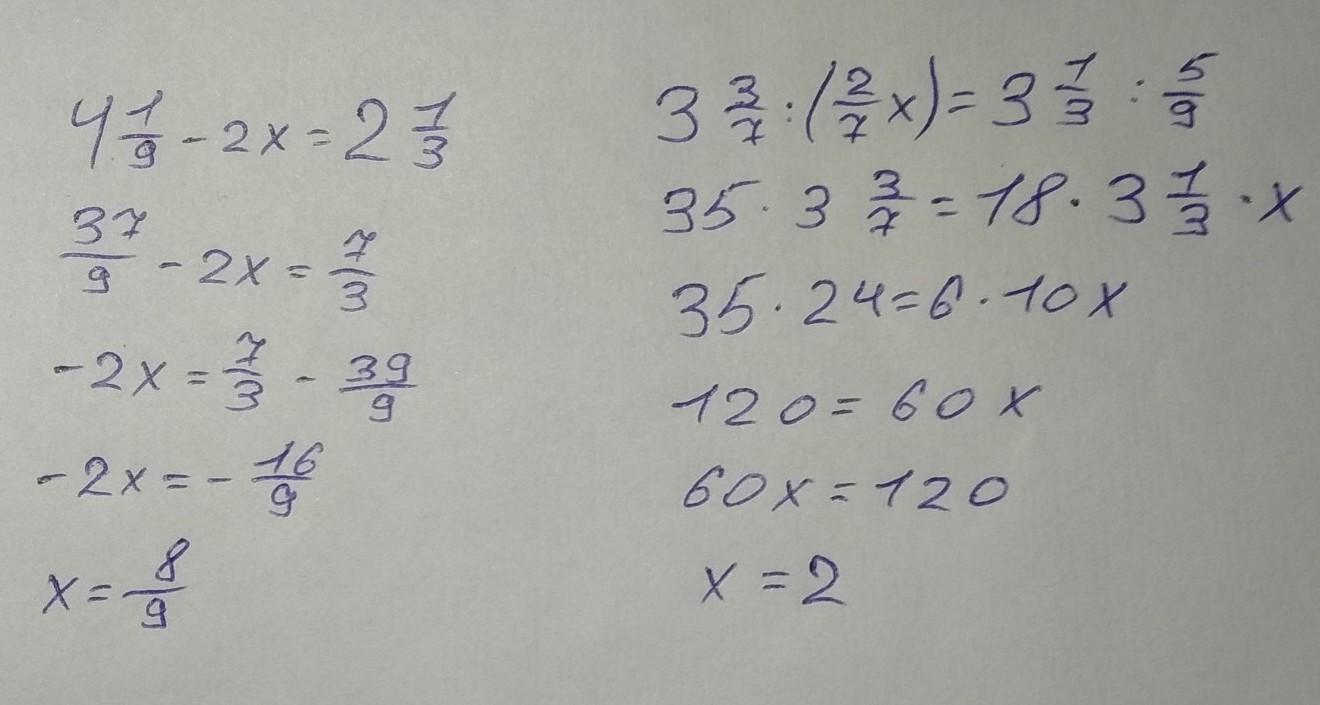 4 1/9 - 2x = 2 1/3
37/9 - 2x = 7/3
-2x = 7/3 - 39/9
-2x = - 16/9
x = 8/9
3 3/7 : (2/7 x) = 3 1/3 : 5/9
35 · 3 3/7 = 18 · 3 1/3 · x
35 · 24 = 6 · 10 x
120 = 60 x
60x = 120
x = 2